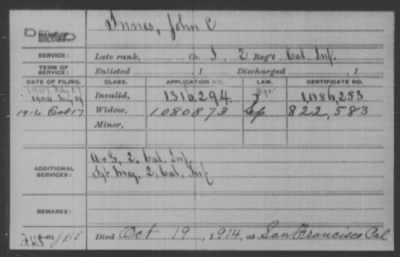 Innes, John C
NAME OF SOLDIER:
SERVICE: Late rank, Co. I, 2 Reg't Cal. Inf.
TERM OF SERVICE: Enlisted 1 Discharged 1
DATE OF FILING. CLASS. APPLICATION NO. LAW. CERTIFICATE NO.
Invalid, 1,086,253
1914 Oct 17 Widow, 1080873 822,583
Minor,
ADDITIONAL SERVICES: A & G, 2. Cal. Inf
Sgt Maj. 2. Cal. Inf
REMARKS:
Died Oct 19, 1914, at San Francisco Cal